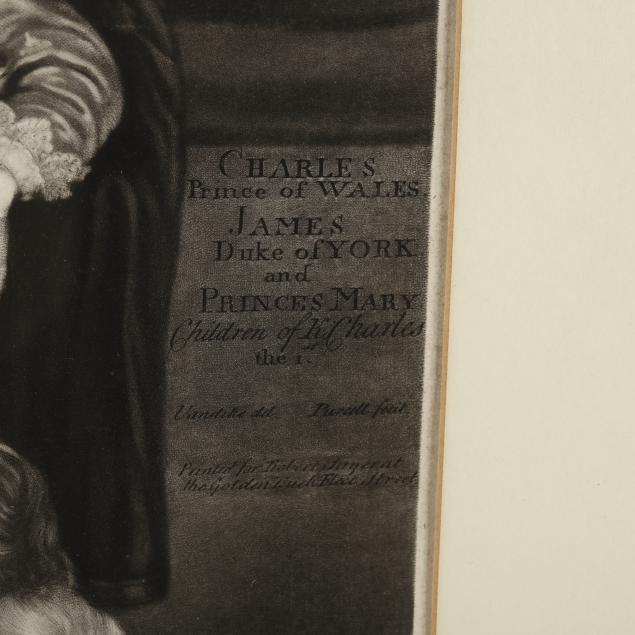 CHARLES
Prince of WALES.
JAMES
Duke of YORK
and
PRINCES MARY
Children of K. Charles
the 1.st
Vandike del. Purcell fecit.
Printed for Robert Sayer at
the Golden Buck Fleet Street.